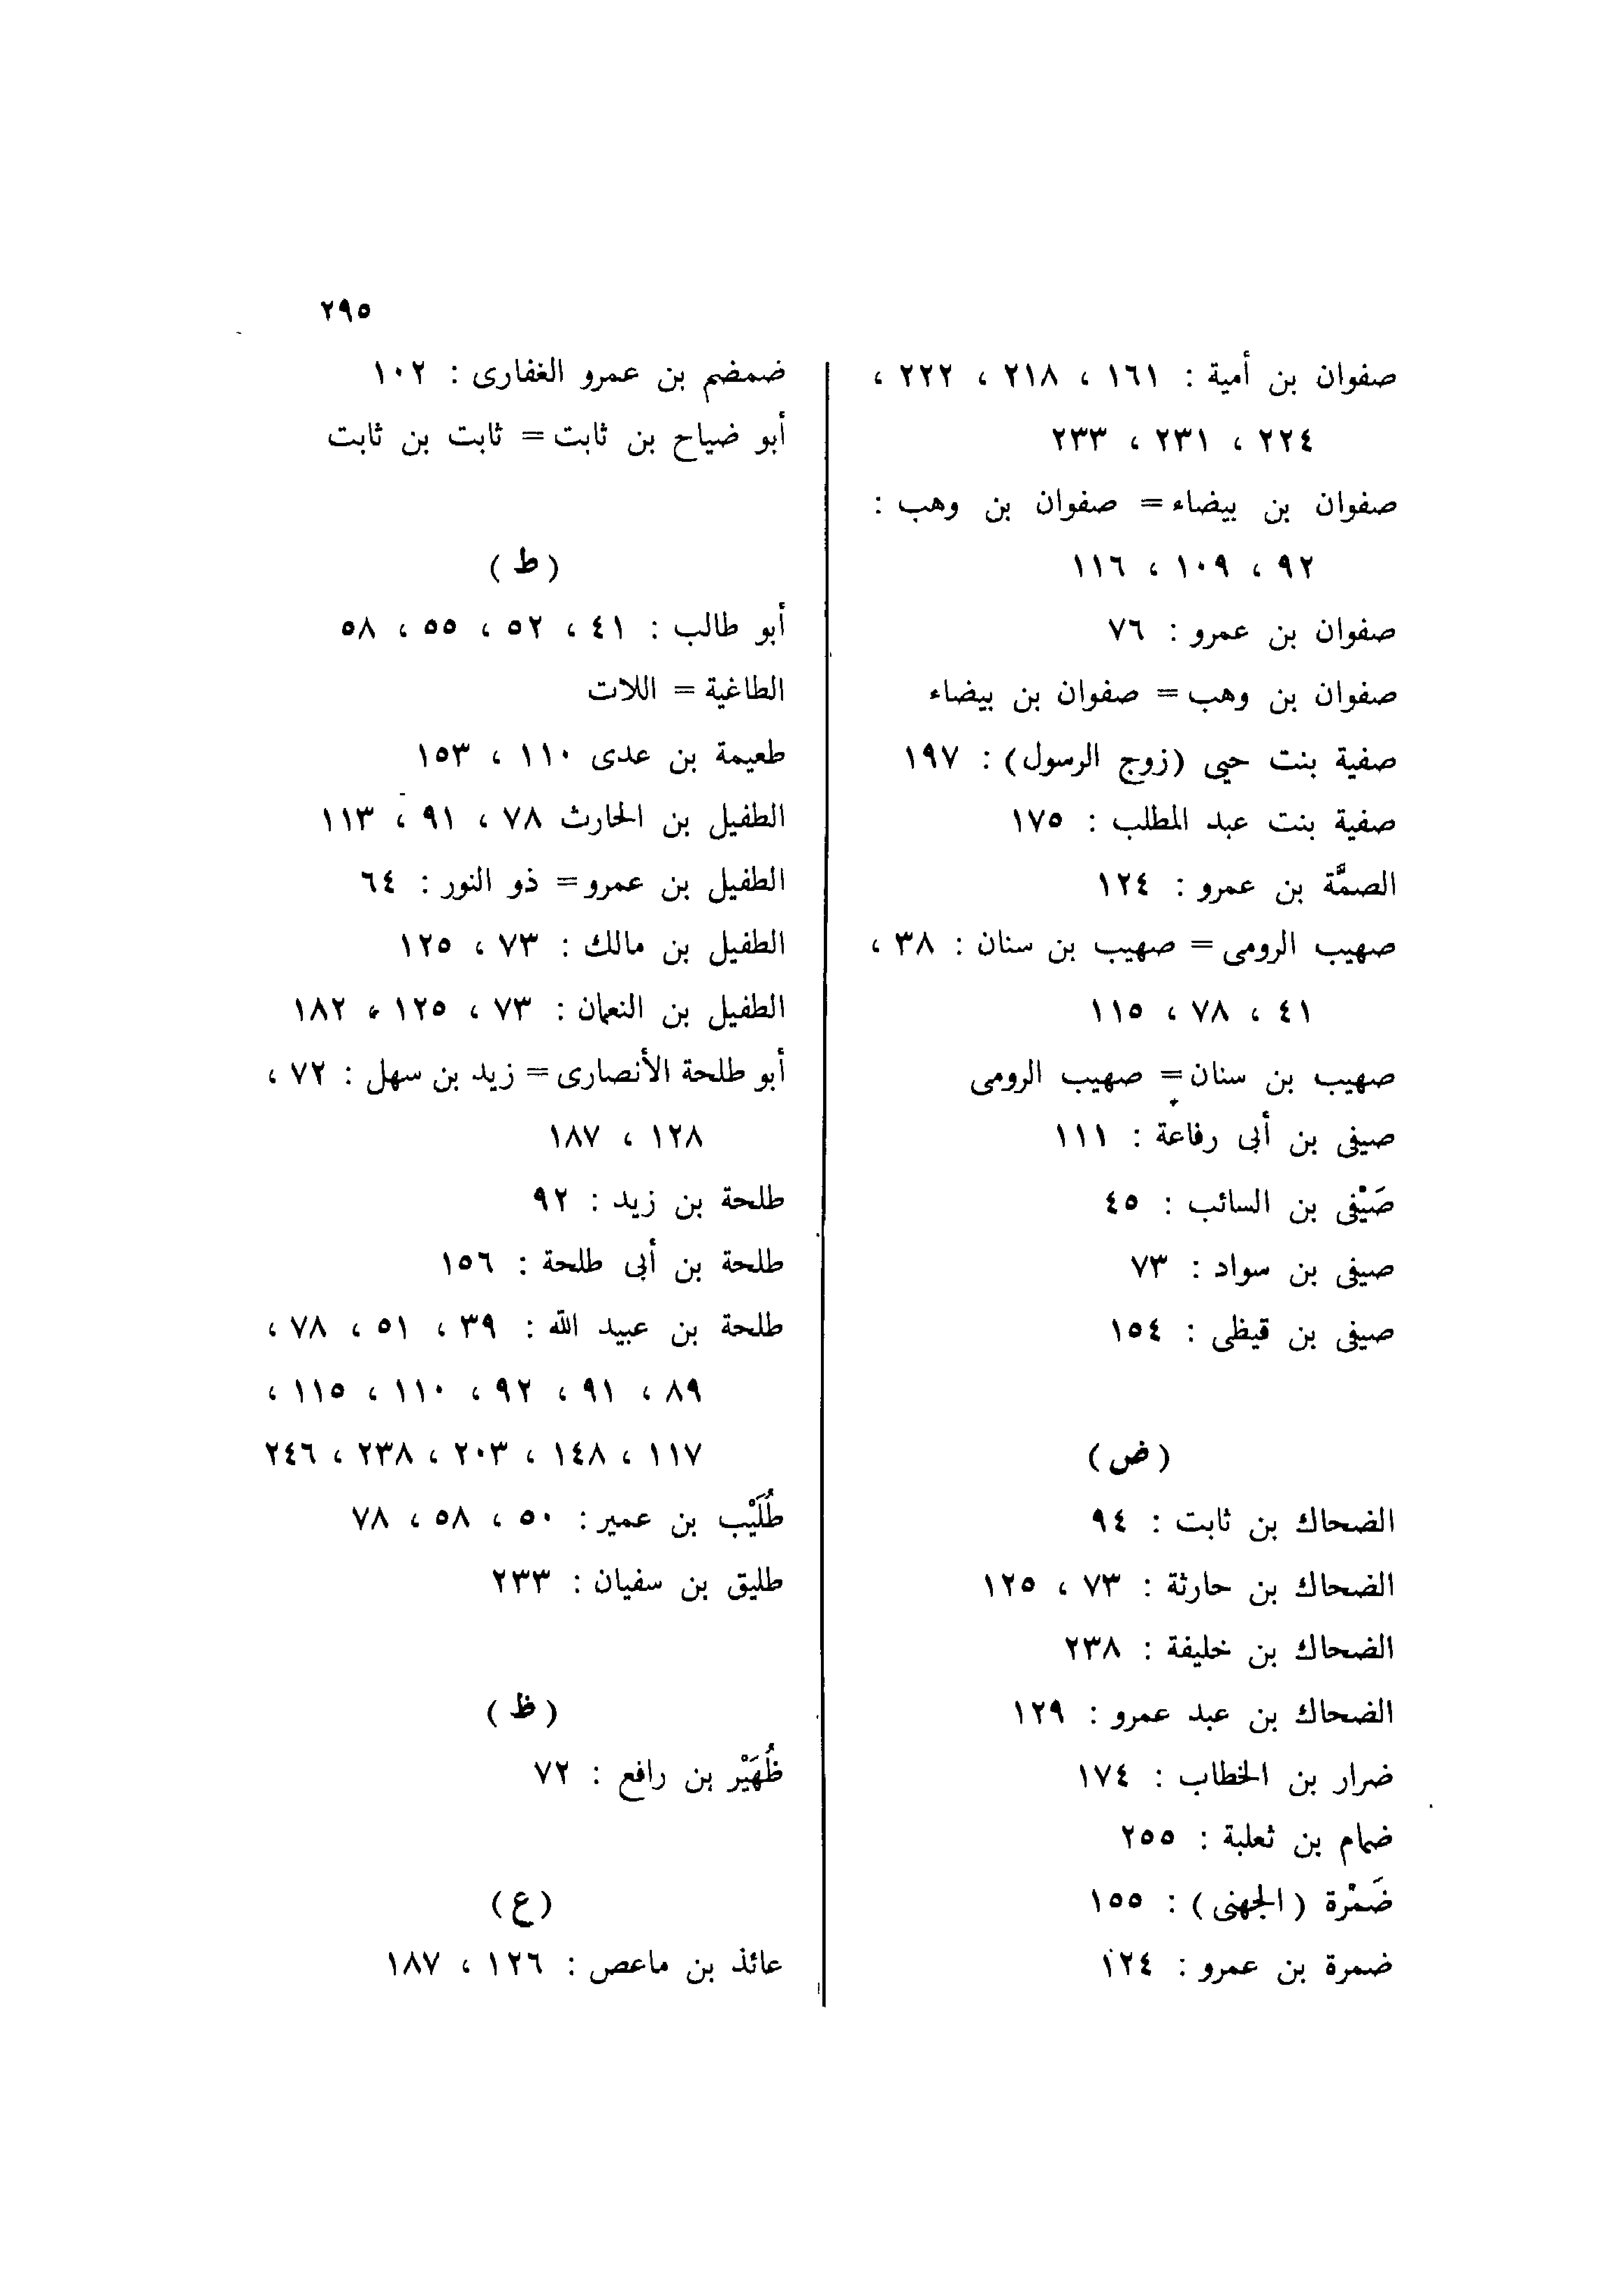 ٢٩٥
صفوان بن أمية : ١٦١ ، ٢١٨ ، ٢٢٢ ،
٢٢٤ ، ٢٣١ ، ٢٣٣
صفوان بن بيضاء = صفوان بن وهب :
٩٢ ، ١٠٩ ، ١١٦
صفوان بن عمرو : ٧٦
صفوان بن وهب = صفوان بن بيضاء
صفية بنت حيى (زوج الرسول) : ١٩٧
صفية بنت عبد المطلب : ١٧٥
الصمَّة بن عمرو : ١٢٤
صهيب الرومى = صهيب بن سنان : ٣٨ ،
٤١ ، ٧٨ ، ١١٥
صهيب بن سنان = صهيب الرومى
صيفى بن أبى رفاعة : ١١١
صَيْفى بن السائب : ٤٥
صيفى بن سواد : ٧٣
صيفى بن قيظى : ١٥٤
( ض )
الضحاك بن ثابت : ٩٤
الضحاك بن حارثة : ٧٣ ، ١٢٥
الضحاك بن خليفة : ٢٣٨
الضحاك بن عبد عمرو : ١٢٩
ضرار بن الخطاب : ١٧٤
ضمام بن ثعلبة : ٢٥٥
ضَمْرة ( الجهنى ) : ١٥٥
ضمرة بن عمرو : ١٢٤
ضمضم بن عمرو الغفارى : ١٠٢
أبو ضياح بن ثابت = ثابت بن ثابت
( ط )
أبو طالب : ٤١ ، ٥٢ ، ٥٥ ، ٥٨
الطاغية = اللات
طعيمة بن عدى ١١٠ ، ١٥٣
الطفيل بن الحارث ٧٨ ، ٩١ ، ١١٣
الطفيل بن عمرو = ذو النور : ٦٤
الطفيل بن مالك : ٧٣ ، ١٢٥
الطفيل بن النعمان : ٧٣ ، ١٢٥ ، ١٨٢
أبو طلحة الأنصارى = زيد بن سهل : ٧٢ ،
١٢٨ ، ١٨٧
طلحة بن زيد : ٩٢
طلحة بن أبى طلحة : ١٥٦
طلحة بن عبيد الله : ٣٩ ، ٥١ ، ٧٨ ،
٨٩ ، ٩١ ، ٩٢ ، ١١٠ ، ١١٥ ،
١١٧ ، ١٤٨ ، ٢٠٣ ، ٢٣٨ ، ٢٤٦
طُلَيْب بن عمير : ٥٠ ، ٥٨ ، ٧٨
طليق بن سفيان : ٢٣٣
( ظ )
ظُهَيْر بن رافع : ٧٢
( ع )
عائذ بن ماعص : ١٢٦ ، ١٨٧